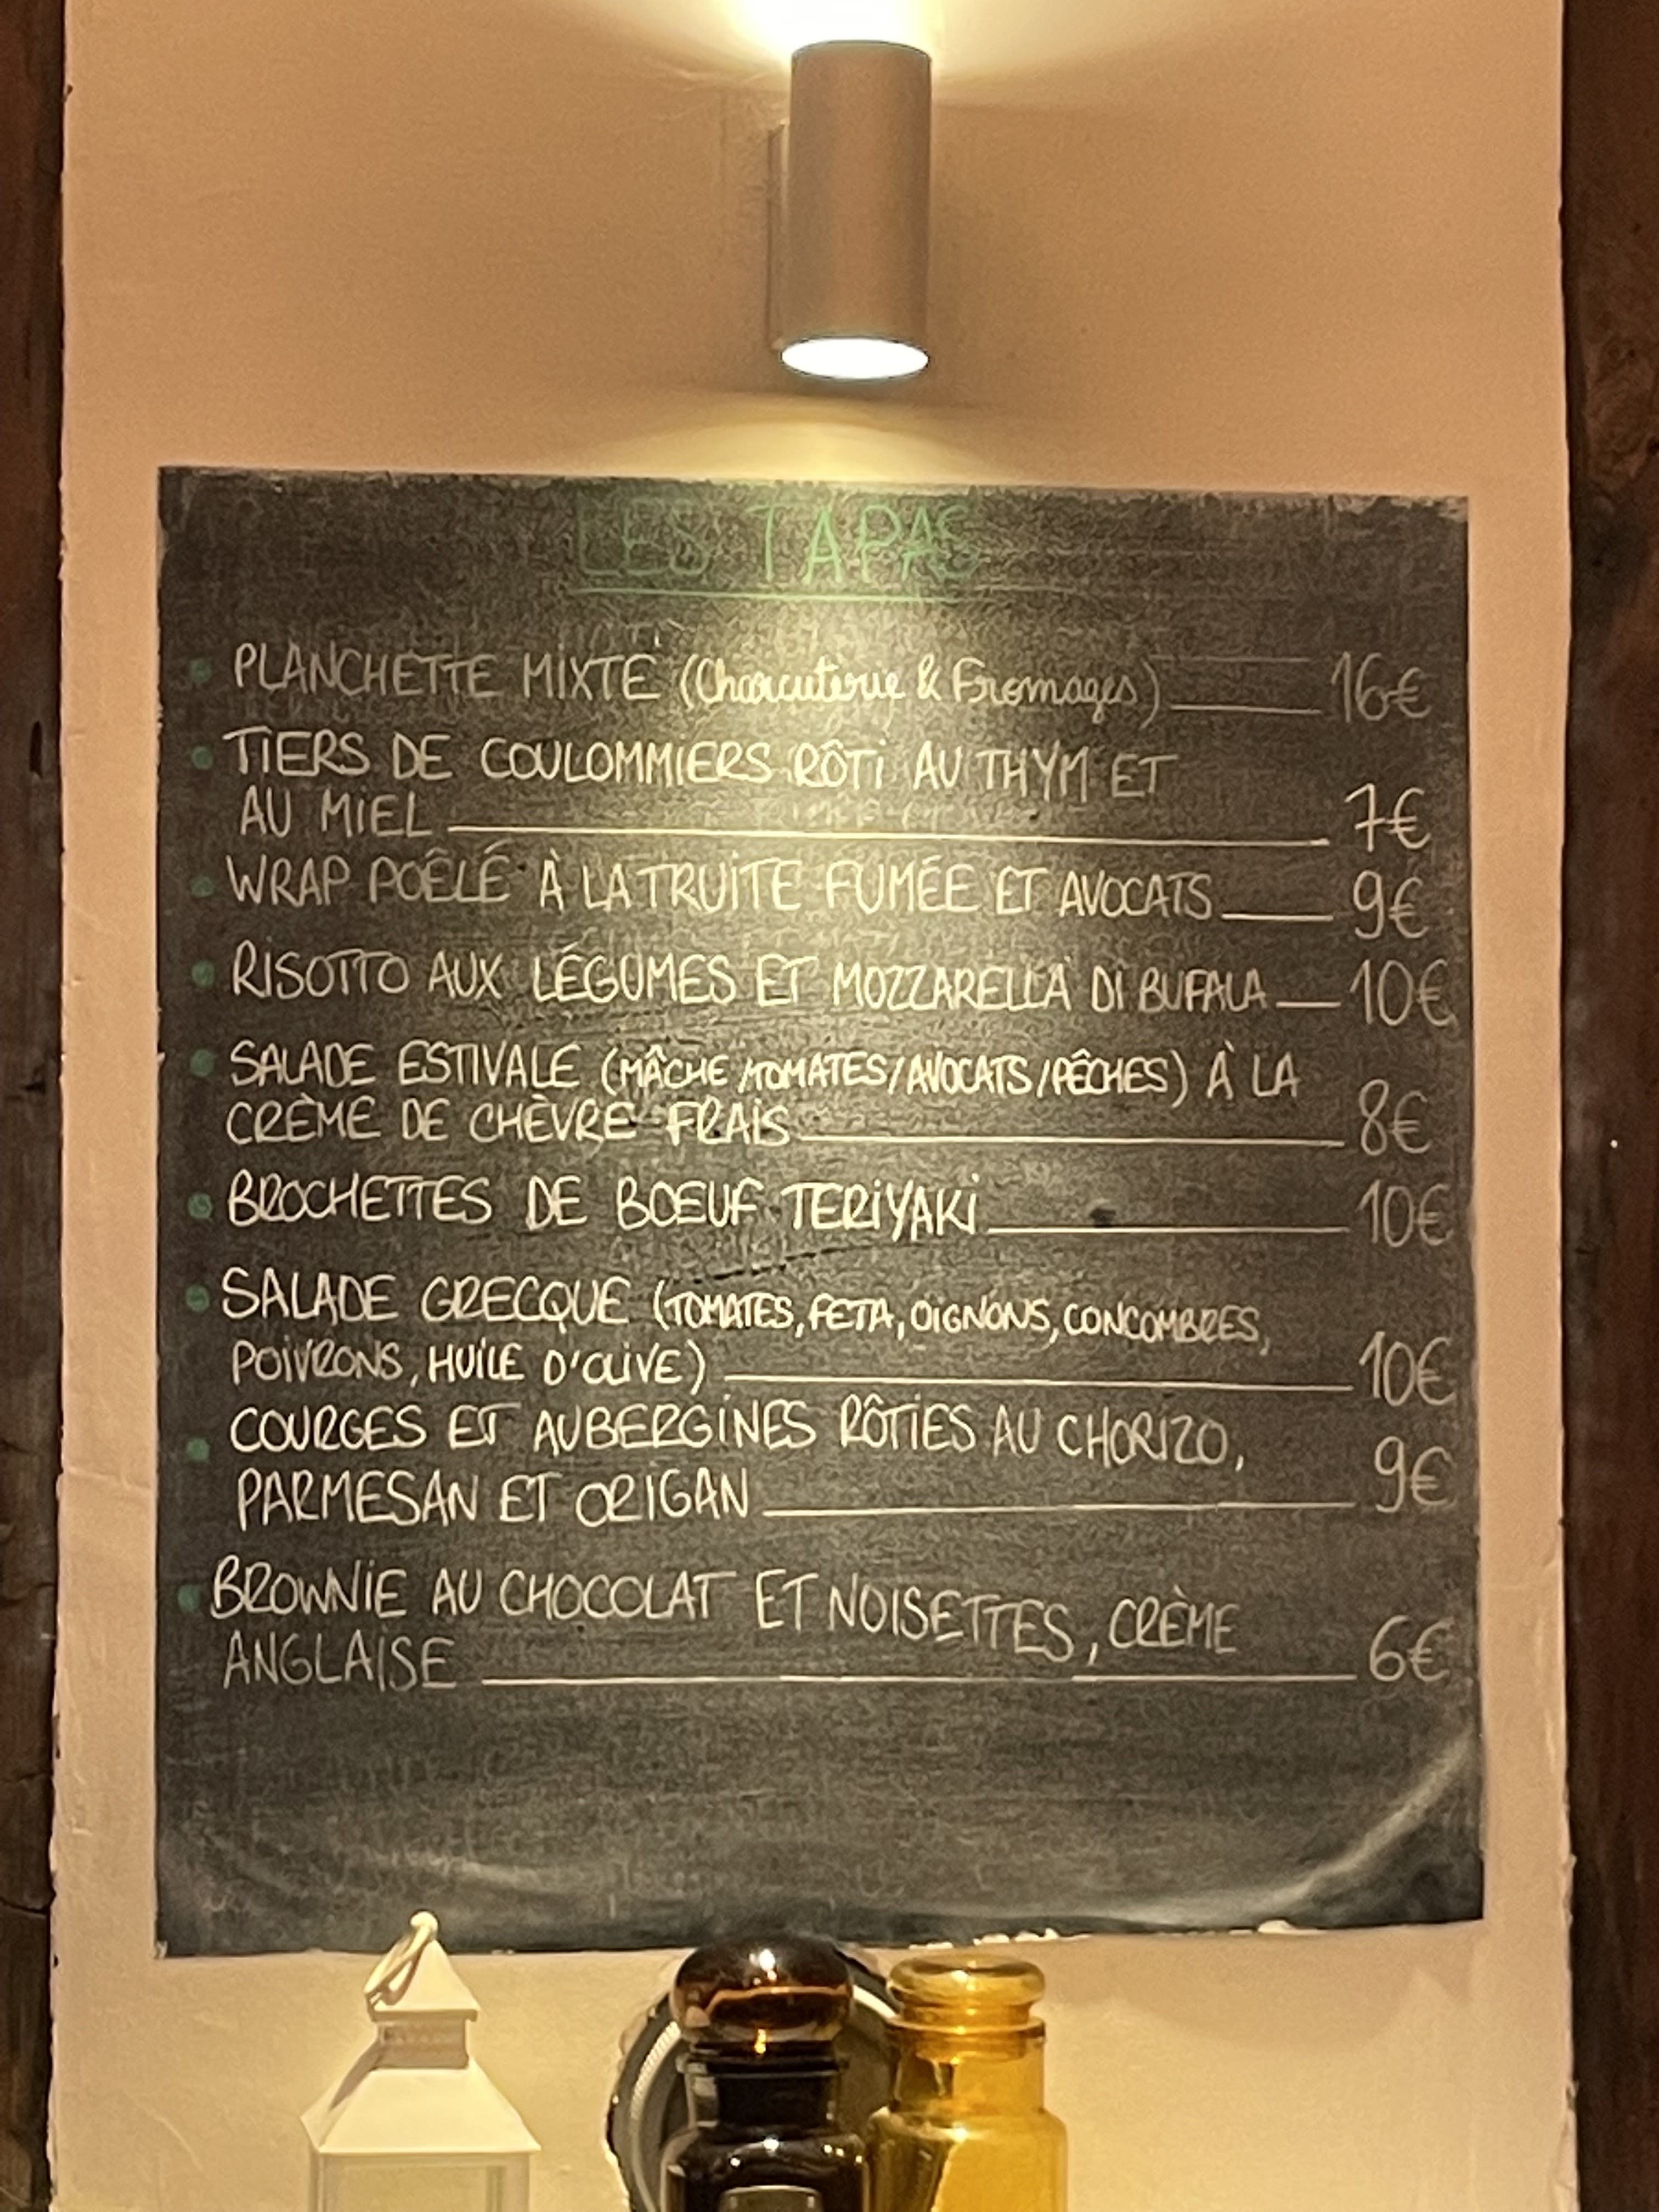 LES TAPAS
• PLANCHETTE MIXTE (Charcuterie & Fromages) 16€
• TIERS DE COULOMMIERS RÔTI AU THYM ET
AU MIEL 7€
• WRAP POÊLÉ À LA TRUITE FUMÉE ET AVOCATS 9€
• RISOTTO AUX LÉGUMES ET MOZZARELLA DI BUFALA 10€
• SALADE ESTIVALE (MÂCHE/TOMATES/AVOCATS/PÊCHES) À LA
CRÈME DE CHÈVRE FRAIS 8€
• BROCHETTES DE BOEUF TERIYAKI 10€
• SALADE GRECQUE (TOMATES, FETA, OIGNONS, CONCOMBRES,
POIVRONS, HUILE D'OLIVE) 10€
• COURGES ET AUBERGINES RÔTIES AU CHORIZO,
PARMESAN ET ORIGAN 9€
• BROWNIE AU CHOCOLAT ET NOISETTES, CRÈME
ANGLAISE 6€